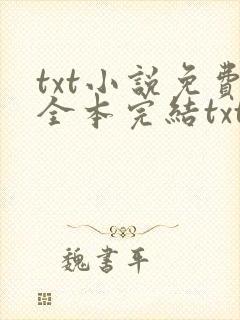 txt小說免費
全本完結txt
魏書平